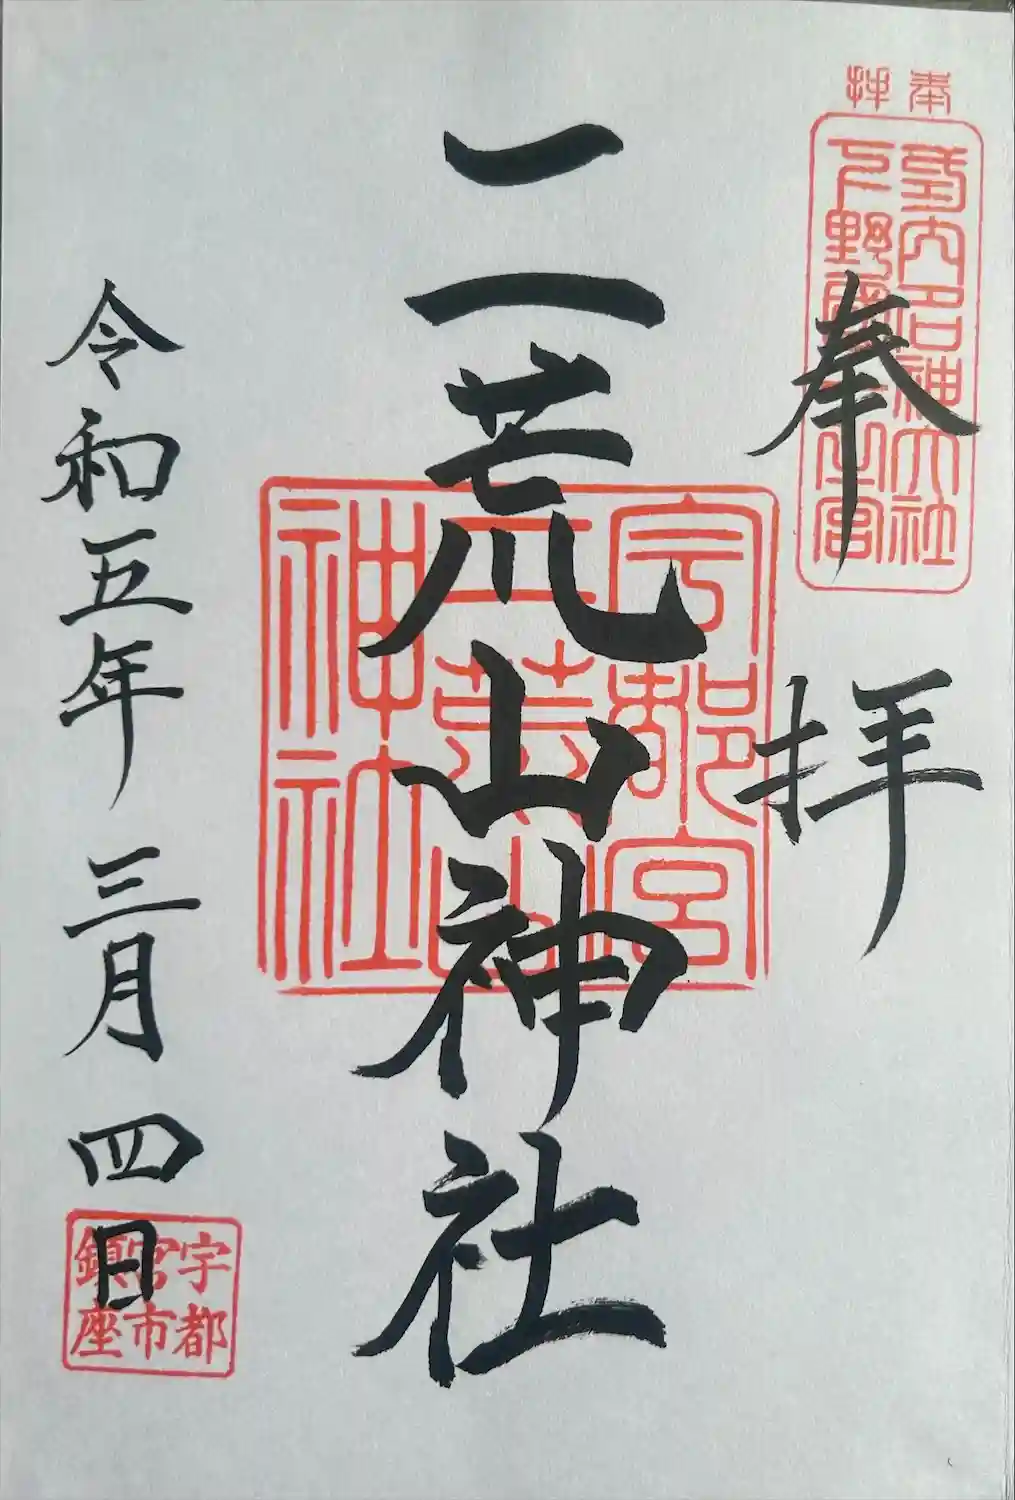 奉拝
式内名神大社
下野國一之宮
奉拝
二荒山神社
宇都宮
二荒山
神社
令和五年三月四日
宇都
宮市
鎮座